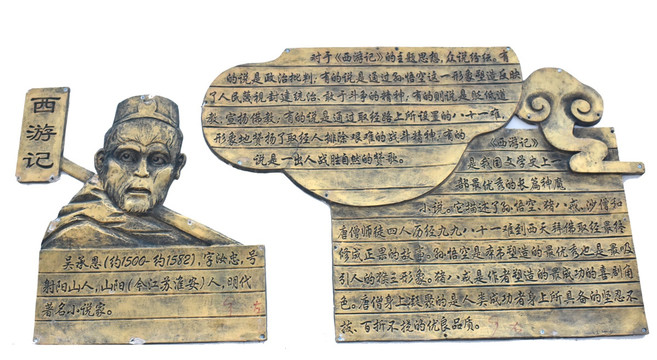 西游记
吴承恩(约1500-约1582),字汝忠,号
射阳山人,山阳(今江苏淮安)人,明代
著名小说家。
对于《西游记》的主题思想,众说纷纭。有
的说是政治批判,有的说是通过孙悟空这一形象塑造反映
了人民蔑视封建统治、敢于斗争的精神,有的则说是贬偷道
教、宣扬佛教,有的说是通过取经路上所设置的八十一难,
形象地赞扬了取经人排除艰难的战斗精神,有的
说是一出人战胜自然的赞歌。
《西游记》
是我国文学史上一
部最优秀的长篇神魔
小说。它描述了孙悟空、猪八戒、沙僧和
唐僧师徒四人历经九九八十一难到西天拜佛取经最终
修成正果的故事。孙悟空是本书塑造的最优秀也是最吸
引人的猴王形象。猪八戒是作者塑造的最成功的喜剧角
色。唐僧身上凝聚的是人类成功者身上所具备的坚忍不
拔、百折不挠的优良品质。